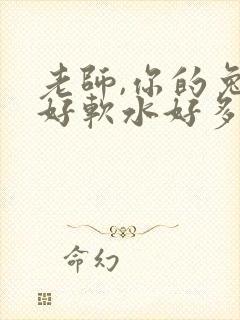 老師,你的兔
好軟水好多
命幻